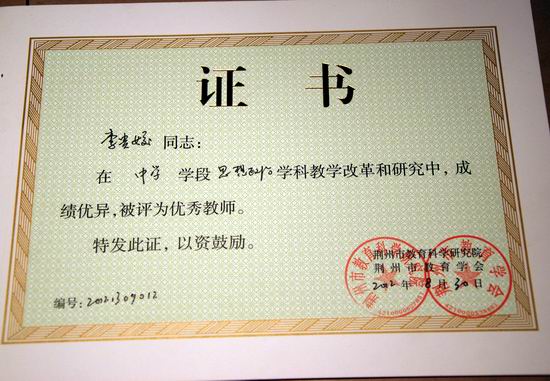 证书
李贵姣 同志：
在 中学 学段 思想政治 学科教学改革和研究中，成
绩优异，被评为优秀教师。
特发此证，以资鼓励。
荆州市教育科学研究院
荆州市教育学会
2012 年 8 月 30 日
编号：20121309012